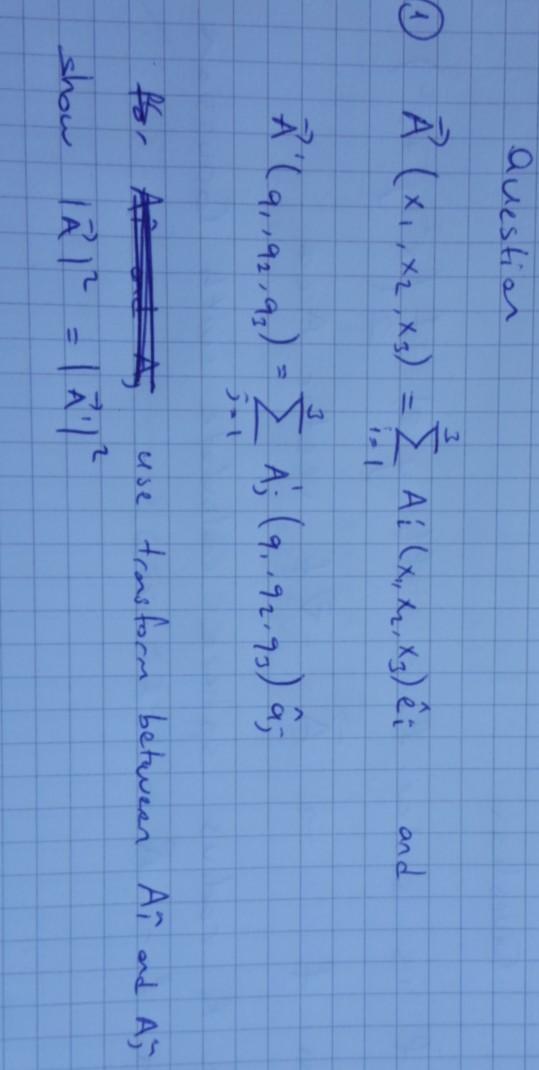 Question
① A⃗ (x₁, x₂, x₃) = ∑³ᵢ₌₁ Aᵢ (x₁, x₂, x₃) êᵢ and
A⃗' (q₁, q₂, q₃) = ∑³ⱼ₌₁ A'ⱼ (q₁, q₂, q₃) âⱼ
use transform between Aᵢ and Aⱼ
show |A⃗|² = |A⃗'|²